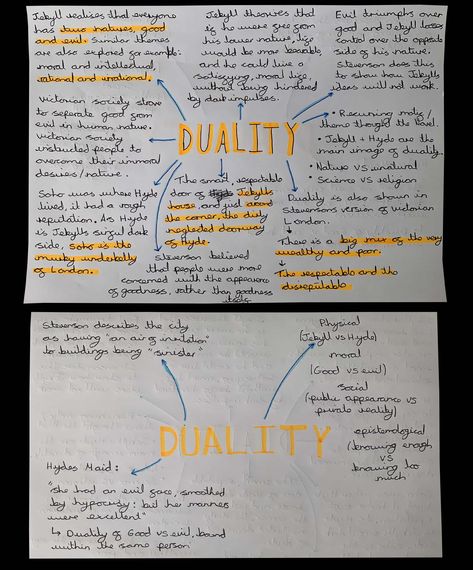 Jekyll realises that everyone
has two natures, good
and evil. Similar themes
are also explored for example:
moral and intellectual,
rational and irrational.
Jekyll theorises that
if he were free from
his lower nature, life
would be more bearable
and he could live a
satisfying, moral life,
without being hindered
by dark impulses.
Evil triumphs over
good and Jekyll loses
control over the opposite
side of his nature.
Stevenson does this
to show how Jekylls
ideas will not work.
Victorian society strove
to seperate good from
evil in human nature.
Victorian society
instructed people to
overcome their immoral
desires/nature.
DUALITY
• Recurring motif/
theme throught the novel.
• Jekyll + Hyde are the
main image of duality.
• Nature vs unnatural
• Science vs religion
Soho was where Hyde
lived, it had a rough
reputation. As Hyde
is Jekylls sinful dark
side, Soho is the
murky underbelly
of London.
The smart, respectable
door of Jekylls
house, and just around
the corner, the dirty
neglected doorway
of Hyde.
Stevenson believed
that people were more
concerned with the appearance
of goodness, rather than goodness
itself.
Duality is also shown in
Stevensons version of victorian
London.
There is a big mix of the very
wealthy and poor.
The respectable and the
disreputable
Stevenson describes the city
as having "an air of invitation"
to buildings being "sinister"
Physical
(Jekyll vs Hyde)
moral
(Good vs evil)
social
(public appearance vs
private reality)
epistemological
(knowing enough
vs
knowing too
much
DUALITY
Hydes Maid:
"she had an evil face, smoothed
by hypocrisy: but her manners
were excellent"
↳ Duality of Good vs evil, bound
within the same person